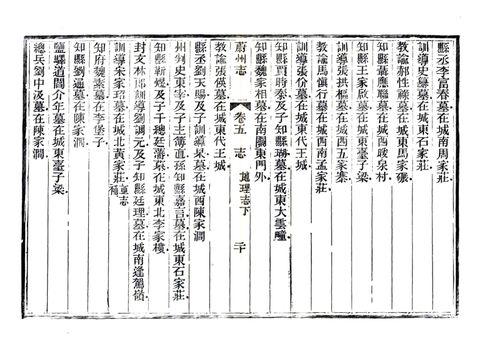 縣丞李富春墓在城南周家莊
訓導史學墓在城東石家莊
教諭郝性禪墓在城東馬家碾
知縣葉應聰墓在城西暖泉村
知縣王家啟墓在城東臺子梁
訓導張拱樞墓在城西五家寨
教諭馬慎行墓在城西南孟家莊
訓導張份墓在城東代王城
知縣賈時泰及子知縣瑚墓在城東大雲疃
知縣魏家相墓在南關東門外
蔚州志 卷五 志 地理志下 二十
教諭張儒墓在城東代王城
縣丞劉天賜及子訓導杲墓在城西陳家澗
州判史東華及子主簿直孫知縣嘉言墓在城東石家莊
知縣靳煖及子千總廷藩墓在城東北李家樓
封文林郎訓導劉調元及子知縣廷理墓在城南逢駕嶺
訓導朱家玿墓在城北黃家莊
知府魏素墓在李堡子
知縣劉遹墓在陳家澗
鹽驛道閻介年墓在城東臺子梁
總兵劉中汲墓在陳家澗